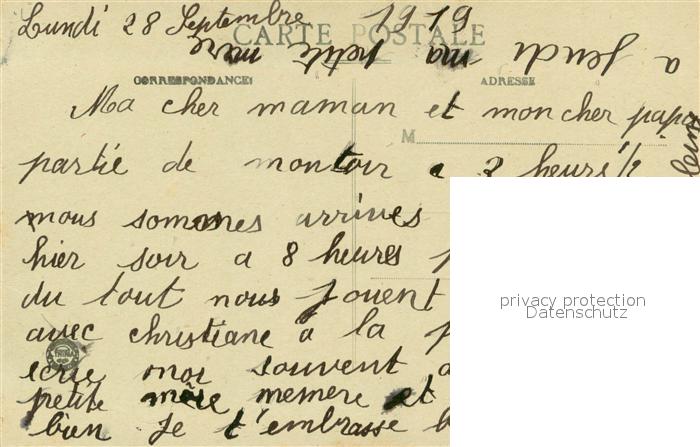 Lundi 28 Septembre 1919
CARTE POSTALE
a jeudi ma petite mère
CORRESPONDANCE
ADRESSE
Ma cher maman et mon cher papa
M
partie de montoir a 3 heurs 1/2
nous sommes arrives
hier soir a 8 heures
du tout nous jouent
avec christiane a la
ecrie moi souvent
petite mère memere et
bien Je t'embrasse
privacy protection
Datenschutz